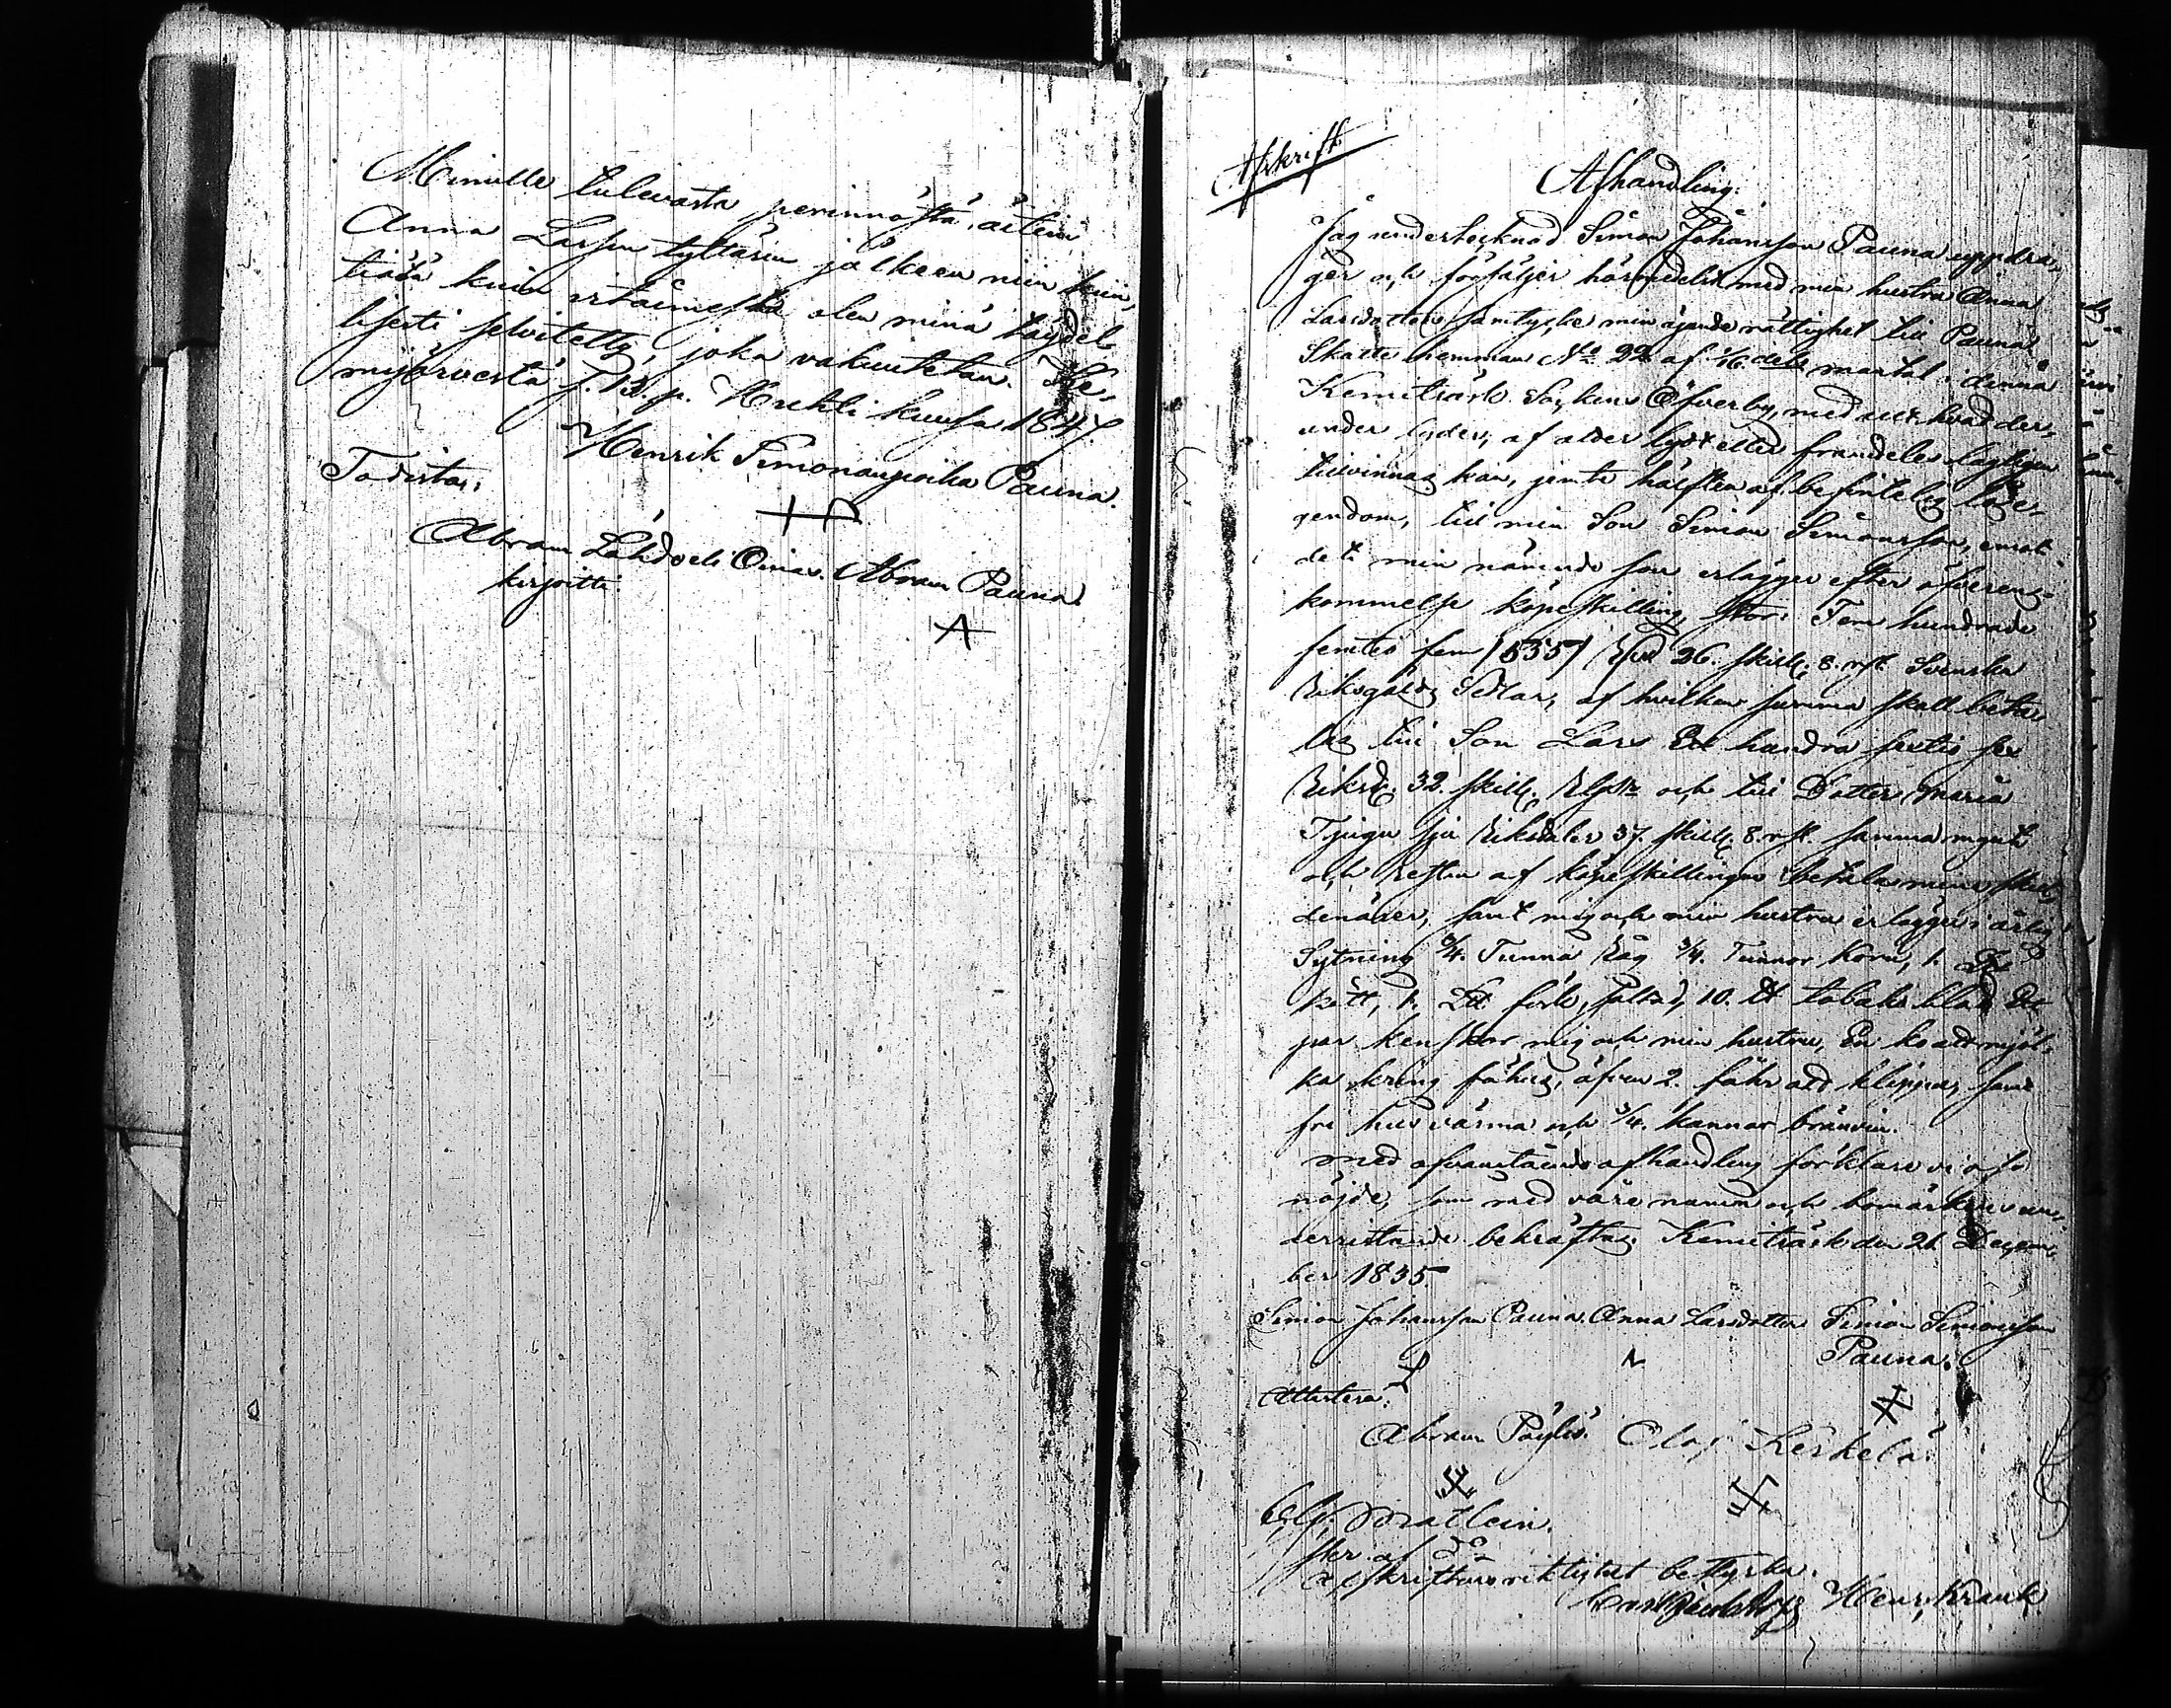 Minulle tulevasta perinnöstä, äitein
Anna Larsin tyttären jälkeen niin kiin-
tiästä kuin irtaimesta olen minä täydel-
lisesti selvitetty, joka vakuutetan. Ke-
mijärvestä p. 13. p. Huhti kuusa 1847.
Henrik Simonanpoika Pauna.
Todistar:
Abram Lahdoeli Oinas. Abram Pauna.
kirjoitti.
Afskrift
Afhandling:
Jag undertecknad Simon Johansson Pauna uppdra-
ger och försäljer härmedelst med min hustru Anna
Larsdotters samtycke min ägande rättighet till Pauna
Skatte hemman No 22 af 1/6 dels mantal i denna
Kemiträsk Sockens Öfverby, med allt hvad der-
under lyder, af ålder lydt eller framdeles lagligen
tillvinnas kan, jemte hälften af befintelig löse-
gendom, till min Son Simon Simonsson, emot
det min nämnde son erlägger efter öfverens-
kommelse köpeskilling, stor: Fem hundrade
femtio fem (555) Rd 26. skill. 8. rst. Svenska
Riksgälds Sedlar, af hvilken summa skall beta-
las till Son Lars Ett hundra sextio sex
Riksd. 32. skill. Rgs och till Dotter Maria
Tjugu sju Riksdaler 37. skill. 8. rst. samma mynt
och resten af köpeskillingen betala mine skul-
denärer, samt mig och min hustru erlägger i årlig
Sytning 3/4. Tunna Råg 3/4. Tunnor Korn, 1. L
kött, 1. L fisk, saltad, 10. tobaks blad Ett
par kenskor mig och min hustru, En ko att mjöl-
ka kring fähus, äfven 2. fåhr att klippas, samt
fri husvärma och 3/4. kannor bränvin.
med ofvanstående afhandling förklare vi oss
nöjde, som med våre namn och bomärken un-
derristande bekräftas. Kemiträsk den 21 Decem-
ber 1835.
Simon Johansson Pauna. Anna Larsdotter Simon Simonsson
Pauna.
Attestera:
Abram Pöyliö. Olof Kerkelä.
Mathlein.
skr. af
afskriftens riktighet bestyrka.
Henr. Krank